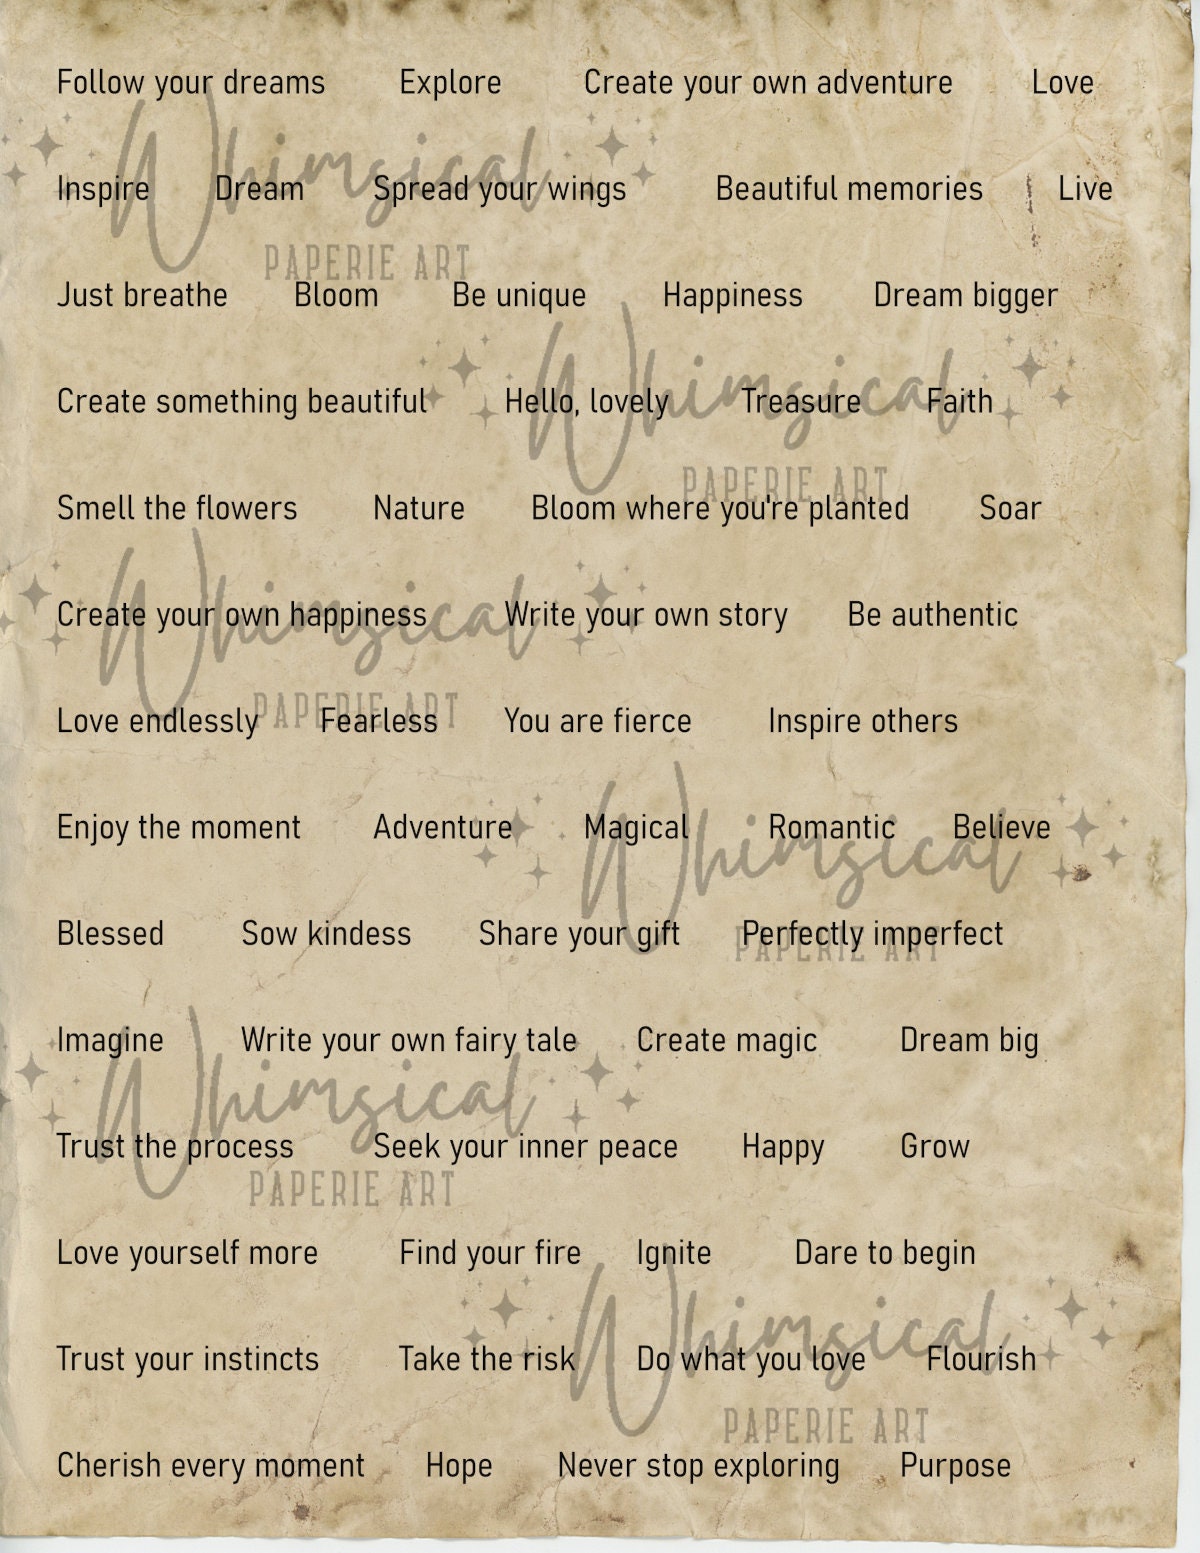 Follow your dreams Explore Create your own adventure Love
Whimsical
Inspire Dream Spread your wings Beautiful memories Live
PAPERIE ART
Just breathe Bloom Be unique Happiness Dream bigger
Whimsical
Create something beautiful Hello, lovely Treasure Faith
PAPERIE ART
Smell the flowers Nature Bloom where you're planted Soar
Whimsical
Create your own happiness Write your own story Be authentic
PAPERIE ART
Love endlessly Fearless You are fierce Inspire others
Enjoy the moment Adventure Magical Romantic Believe
Whimsical
Blessed Sow kindess Share your gift Perfectly imperfect
PAPERIE ART
Imagine Write your own fairy tale Create magic Dream big
Whimsical
Trust the process Seek your inner peace Happy Grow
PAPERIE ART
Love yourself more Find your fire Ignite Dare to begin
Whimsical
Trust your instincts Take the risk Do what you love Flourish
PAPERIE ART
Cherish every moment Hope Never stop exploring Purpose